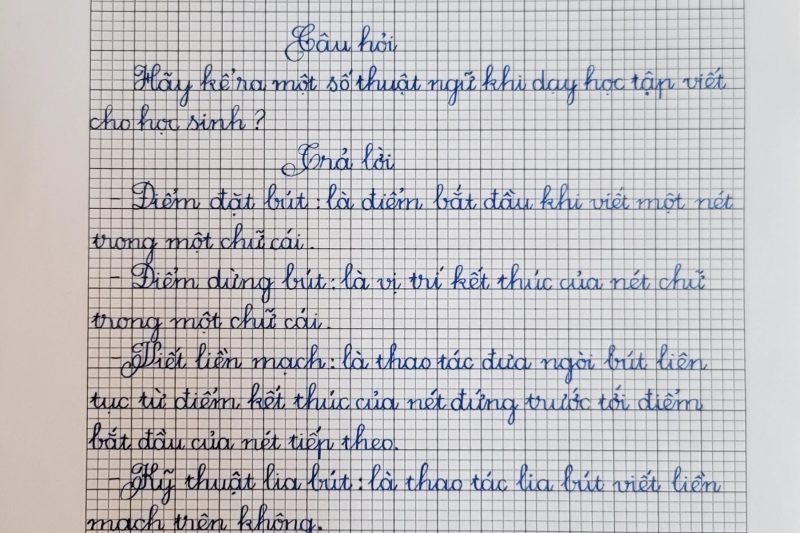 Câu hỏi
Hãy kể ra một số thuật ngữ khi dạy học tập viết
cho học sinh?
Trả lời
- Điểm đặt bút: là điểm bắt đầu khi viết một nét
trong một chữ cái.
- Điểm dừng bút: là vị trí kết thúc của nét chữ
trong một chữ cái.
- Viết liền mạch: là thao tác đưa ngòi bút liên
tục từ điểm kết thúc của nét đứng trước tới điểm
bắt đầu của nét tiếp theo.
- Kỹ thuật lia bút: là thao tác lia bút viết liền
mạch trên không.